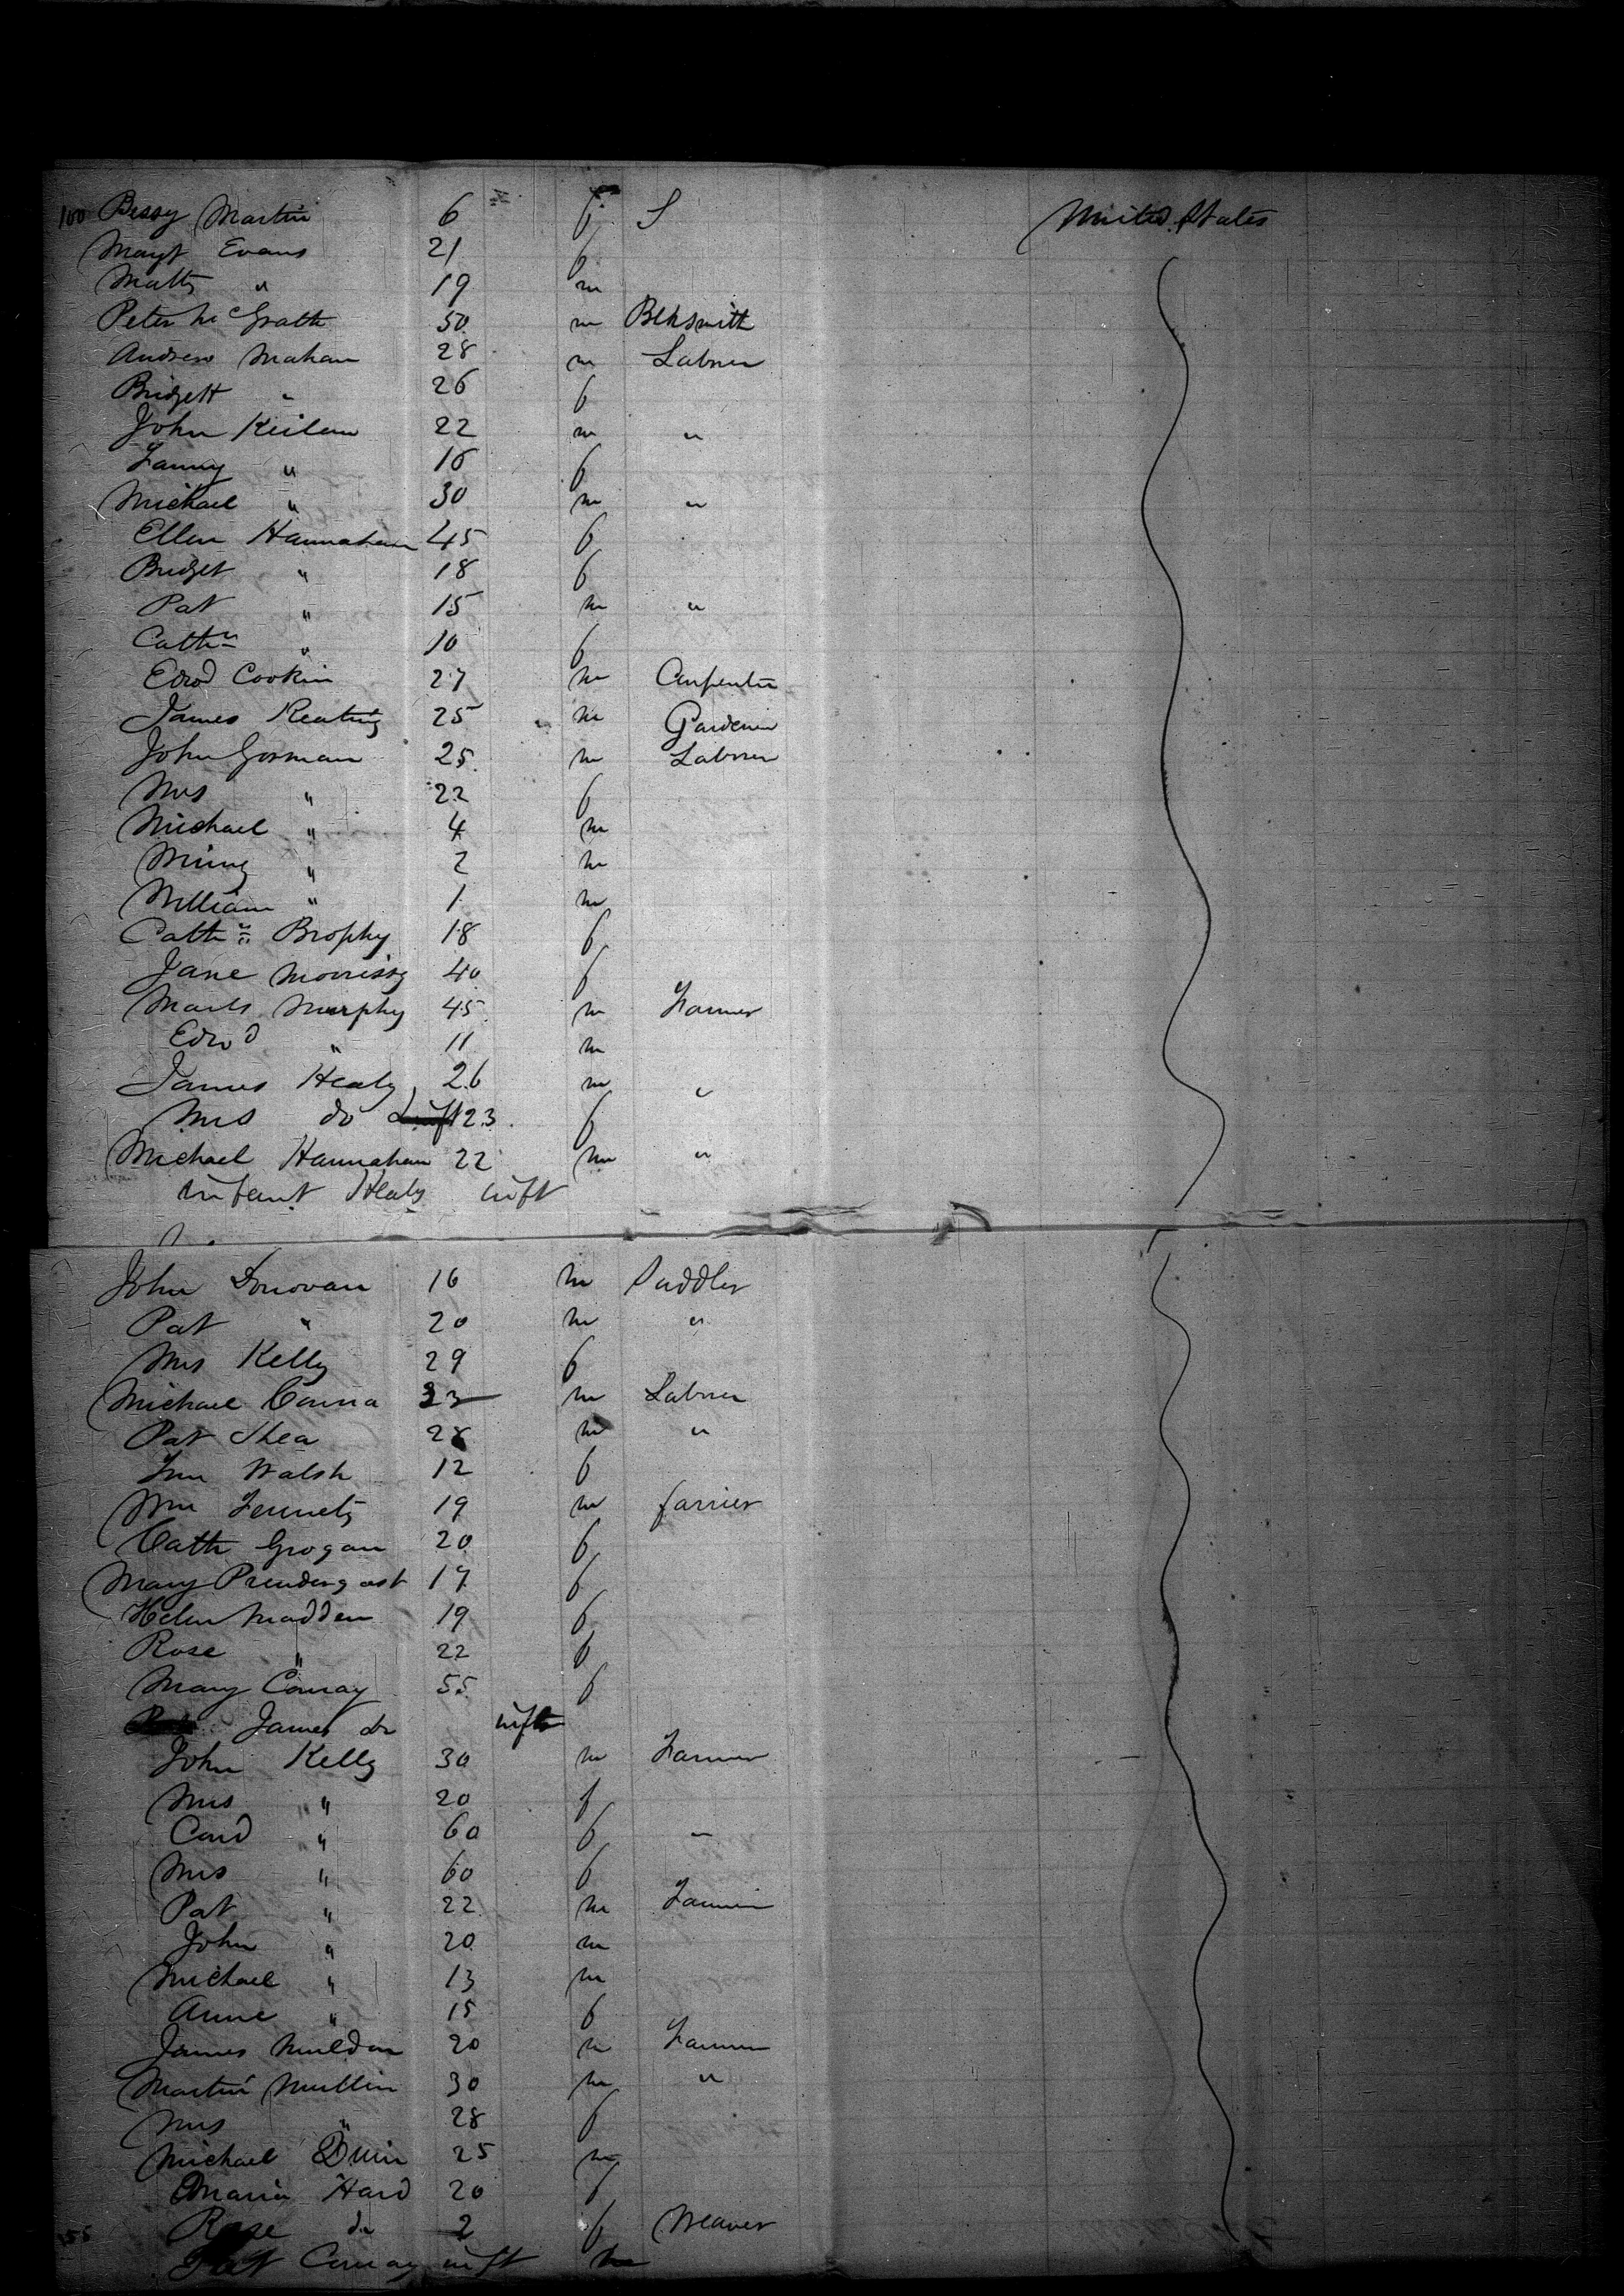 100 Bessy Martin 6 f S United States
Margt Evans 21 f
Matty " 19 m
Peter McGrath 50 m Blksmith
Andrew Mahan 28 m Labrer
Bridgett " 26 f
John Keilan 22 m "
Fanny " 16 f
Michael " 30 m "
Ellen Hannahan 45 f
Bridget " 18 f
Pat " 15 m "
Cathn " 10 f
Edwd Cookin 27 m Carpenter
James Keating 25 m Gardener
John Gorman 25 m Labrer
Mrs " 22 f
Michael " 4 m
" 2 m
William " 1 m
Cathn Brophy 18 f
Jane Morrissy 40 f
Murphy 45 m Farmer
Edwd " 11 m
James Healy 26 m "
Mrs do 23 f
Michael Hannahan 22 m "
Infant Healy inft
John Donovan 16 m Saddler
Pat " 20 m "
Mrs Kelly 29 f
Michael 23 m Labrer
Pat Shea 28 m "
Walsh 12 f
Wm 19 m farrier
Cath Grogan 20 f
Mary Prendergast 17 f
Helen Madden 19 f
Rose " 22 f
Mary Conray 55 f
James do inft
John Kelly 30 m Farmer
Mrs " 20 f
" 60 f "
Mrs " 60 f
Pat " 22 m Farmer
John " 20 m
Michael " 13 m
Anne " 15 f
James Muldon 20 m Farmer
Martin Mullin 30 m "
Mrs " 28 f
Michael 25 m
Maria Hard 20 f
Rose do 2 f Weaver
Pat Conray inft m